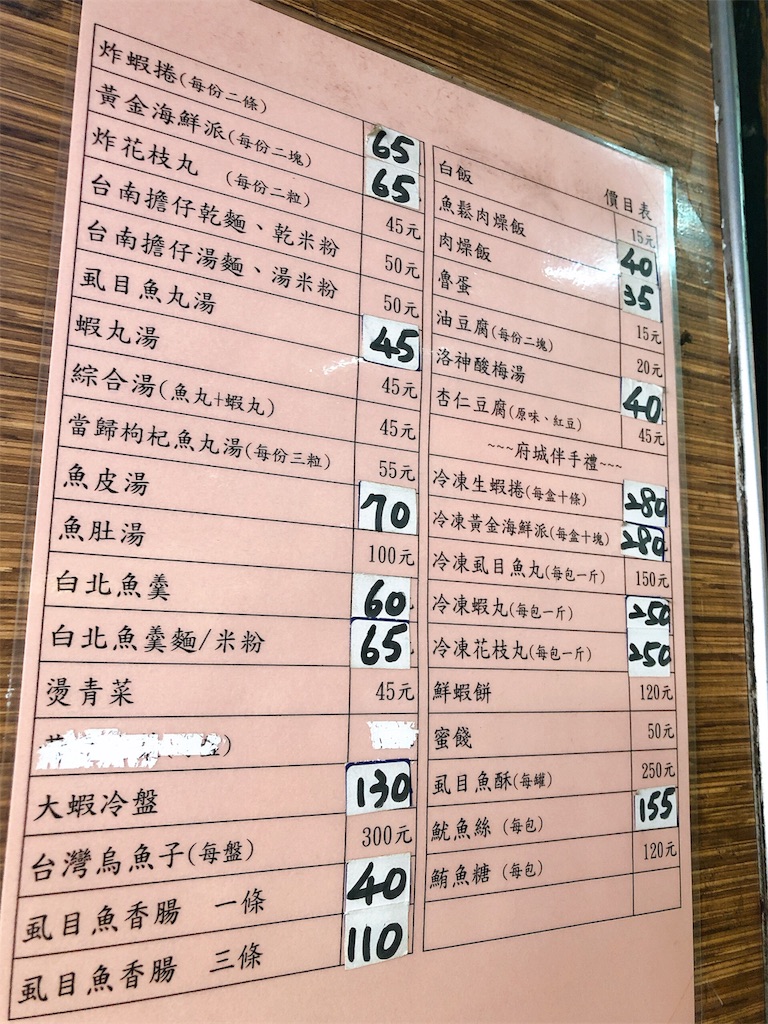 炸蝦捲(每份二條) 65
黃金海鮮派(每份二塊) 65
炸花枝丸 (每份二粒) 45元
台南擔仔乾麵、乾米粉 50元
台南擔仔湯麵、湯米粉 50元
虱目魚丸湯 45
蝦丸湯 45元
綜合湯(魚丸+蝦丸) 45元
當歸枸杞魚丸湯(每份三粒) 55元
魚皮湯 70
魚肚湯 100元
白北魚羹 60
白北魚羹麵/米粉 65
燙青菜 45元
大蝦冷盤 130
台灣烏魚子(每盤) 300元
虱目魚香腸 一條 40
虱目魚香腸 三條 110
價目表
白飯 15元
魚鬆肉燥飯 40
肉燥飯 35
魯蛋 15元
油豆腐(每份二塊) 20元
洛神酸梅湯 40
杏仁豆腐(原味、紅豆) 45元
~~~府城伴手禮~~~
冷凍生蝦捲(每盒十條) 280
冷凍黃金海鮮派(每盒十塊) 280
冷凍虱目魚丸(每包一斤) 150元
冷凍蝦丸(每包一斤) 250
冷凍花枝丸(每包一斤) 250
鮮蝦餅 120元
蜜餞 50元
虱目魚酥(每罐) 250元
魷魚絲 (每包) 155
鮪魚糖 (每包) 120元